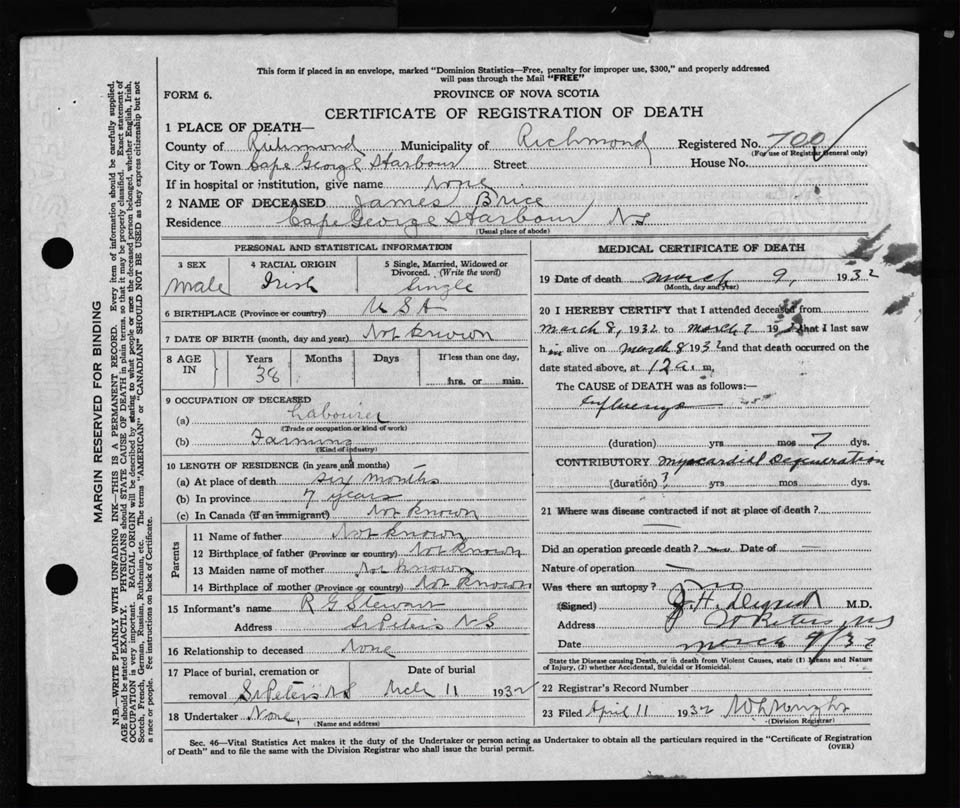 This form if placed in an envelope, marked "Dominion Statistics—Free, penalty for improper use, $300," and properly addressed
will pass through the Mail "FREE"
FORM 6.
PROVINCE OF NOVA SCOTIA
CERTIFICATE OF REGISTRATION OF DEATH
1 PLACE OF DEATH—
County of Richmond Municipality of Richmond Registered No. 700
(For use of Registrar General only)
City or Town Cape George Harbour Street House No.
If in hospital or institution, give name None
2 NAME OF DECEASED James Brice
Residence Cape George Harbour NS
(Usual place of abode)
PERSONAL AND STATISTICAL INFORMATION
3 SEX 4 RACIAL ORIGIN 5 Single, Married, Widowed or
Divorced. (Write the word)
Male Irish Single
6 BIRTHPLACE (Province or country) U S A
7 DATE OF BIRTH (month, day and year) Not known
8 AGE IN Years Months Days If less than one day,
38 hrs. or min.
9 OCCUPATION OF DECEASED
(a) Labourer
(Trade or occupation or kind of work)
(b) Farming
(Kind of industry)
10 LENGTH OF RESIDENCE (in years and months)
(a) At place of death six months
(b) In province 7 years
(c) In Canada (if an immigrant) Not known
Parents
11 Name of father Not known
12 Birthplace of father (Province or country) Not known
13 Maiden name of mother Not known
14 Birthplace of mother (Province or country) Not known
15 Informant's name R G Stewart
Address St Peters N S
16 Relationship to deceased None
17 Place of burial, cremation or Date of burial
removal St Peters NS Mch 11 1932
18 Undertaker None
(Name and address)
MEDICAL CERTIFICATE OF DEATH
19 Date of death March 9, 1932
(Month, day and year)
20 I HEREBY CERTIFY that I attended deceased from
March 8, 1932 to March 19 that I last saw
h im alive on March 8 1932 and that death occurred on the
date stated above, at 12 a. m,
The CAUSE of DEATH was as follows:—
Influenza
(duration) yrs mos 7 dys.
CONTRIBUTORY Myocardial Degeneration
(duration) ? yrs mos dys.
21 Where was disease contracted if not at place of death?
—
Did an operation precede death? Date of —
Nature of operation —
Was there an autopsy? no
(Signed) J. H. M.D.
Address St Peters, NS
Date March 9/32
State the Disease causing Death, or in death from Violent Causes, state (1) Means and Nature
of Injury, (2) whether Accidental, Suicidal or Homicidal.
22 Registrar's Record Number
23 Filed April 11 1932
(Division Registrar)
Sec. 46—Vital Statistics Act makes it the duty of the Undertaker or person acting as Undertaker to obtain all the particulars required in the "Certificate of Registration
of Death" and to file the same with the Division Registrar who shall issue the burial permit. (OVER)
MARGIN RESERVED FOR BINDING
N.B.—WRITE PLAINLY WITH UNFADING INK—THIS IS A PERMANENT RECORD. Every item of information should be carefully supplied.
AGE should be stated EXACTLY. PHYSICIANS should STATE CAUSE OF DEATH in plain terms, so that it may be properly classified. Exact statement of
OCCUPATION is very important. RACIAL ORIGIN will be described by stating to what people or race the deceased person belonged, whether English, Irish,
Scotch, French, German, Russian, Ruthenian, etc. The terms "AMERICAN" or "CANADIAN" SHOULD NOT BE USED as they express citizenship but not
a race or people. Fee instructions on back of Certificate.